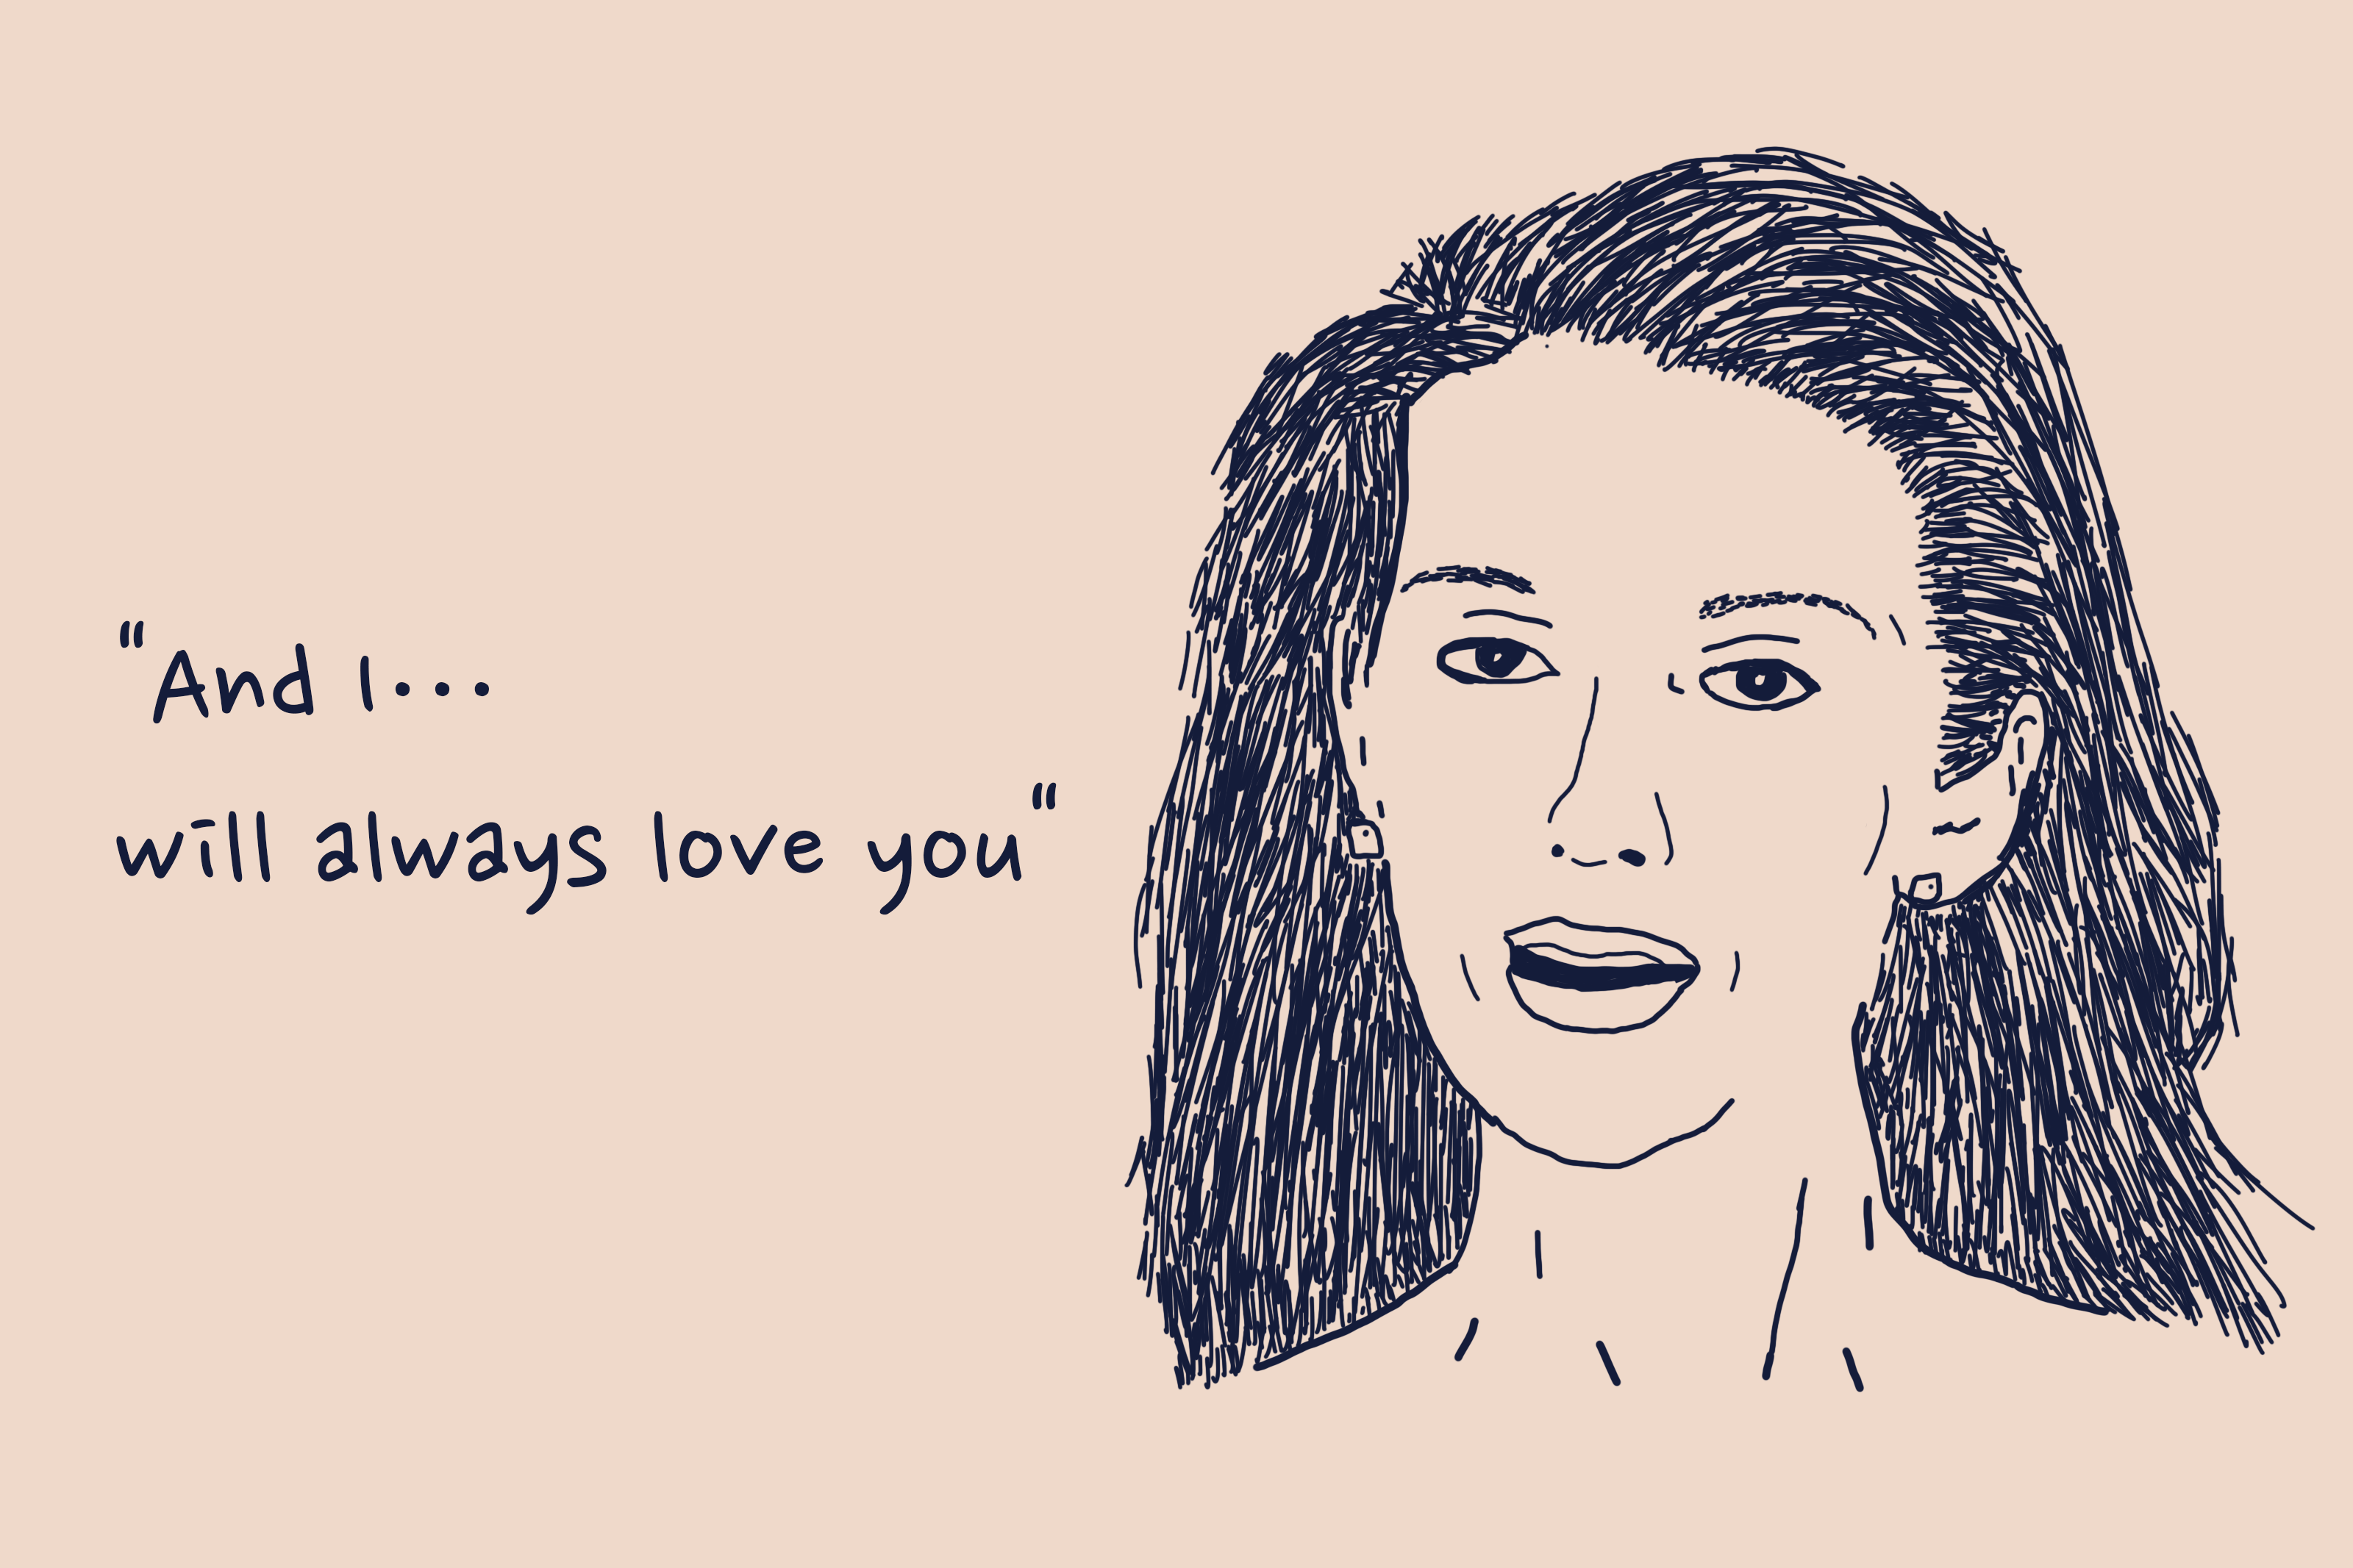 "And I...
will always love you"